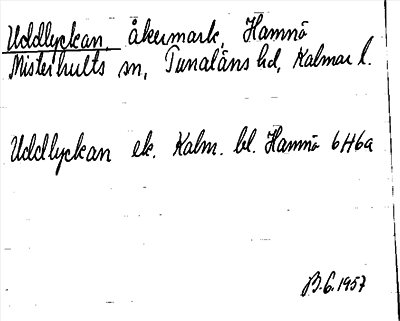 Uddlyckan, åkermark, Hamnö
Misterhults sn, Tunaläns hd, Kalmar l.
Uddlyckan ek. Kalm. bl. Hamnö 6H6a
B.G. 1957